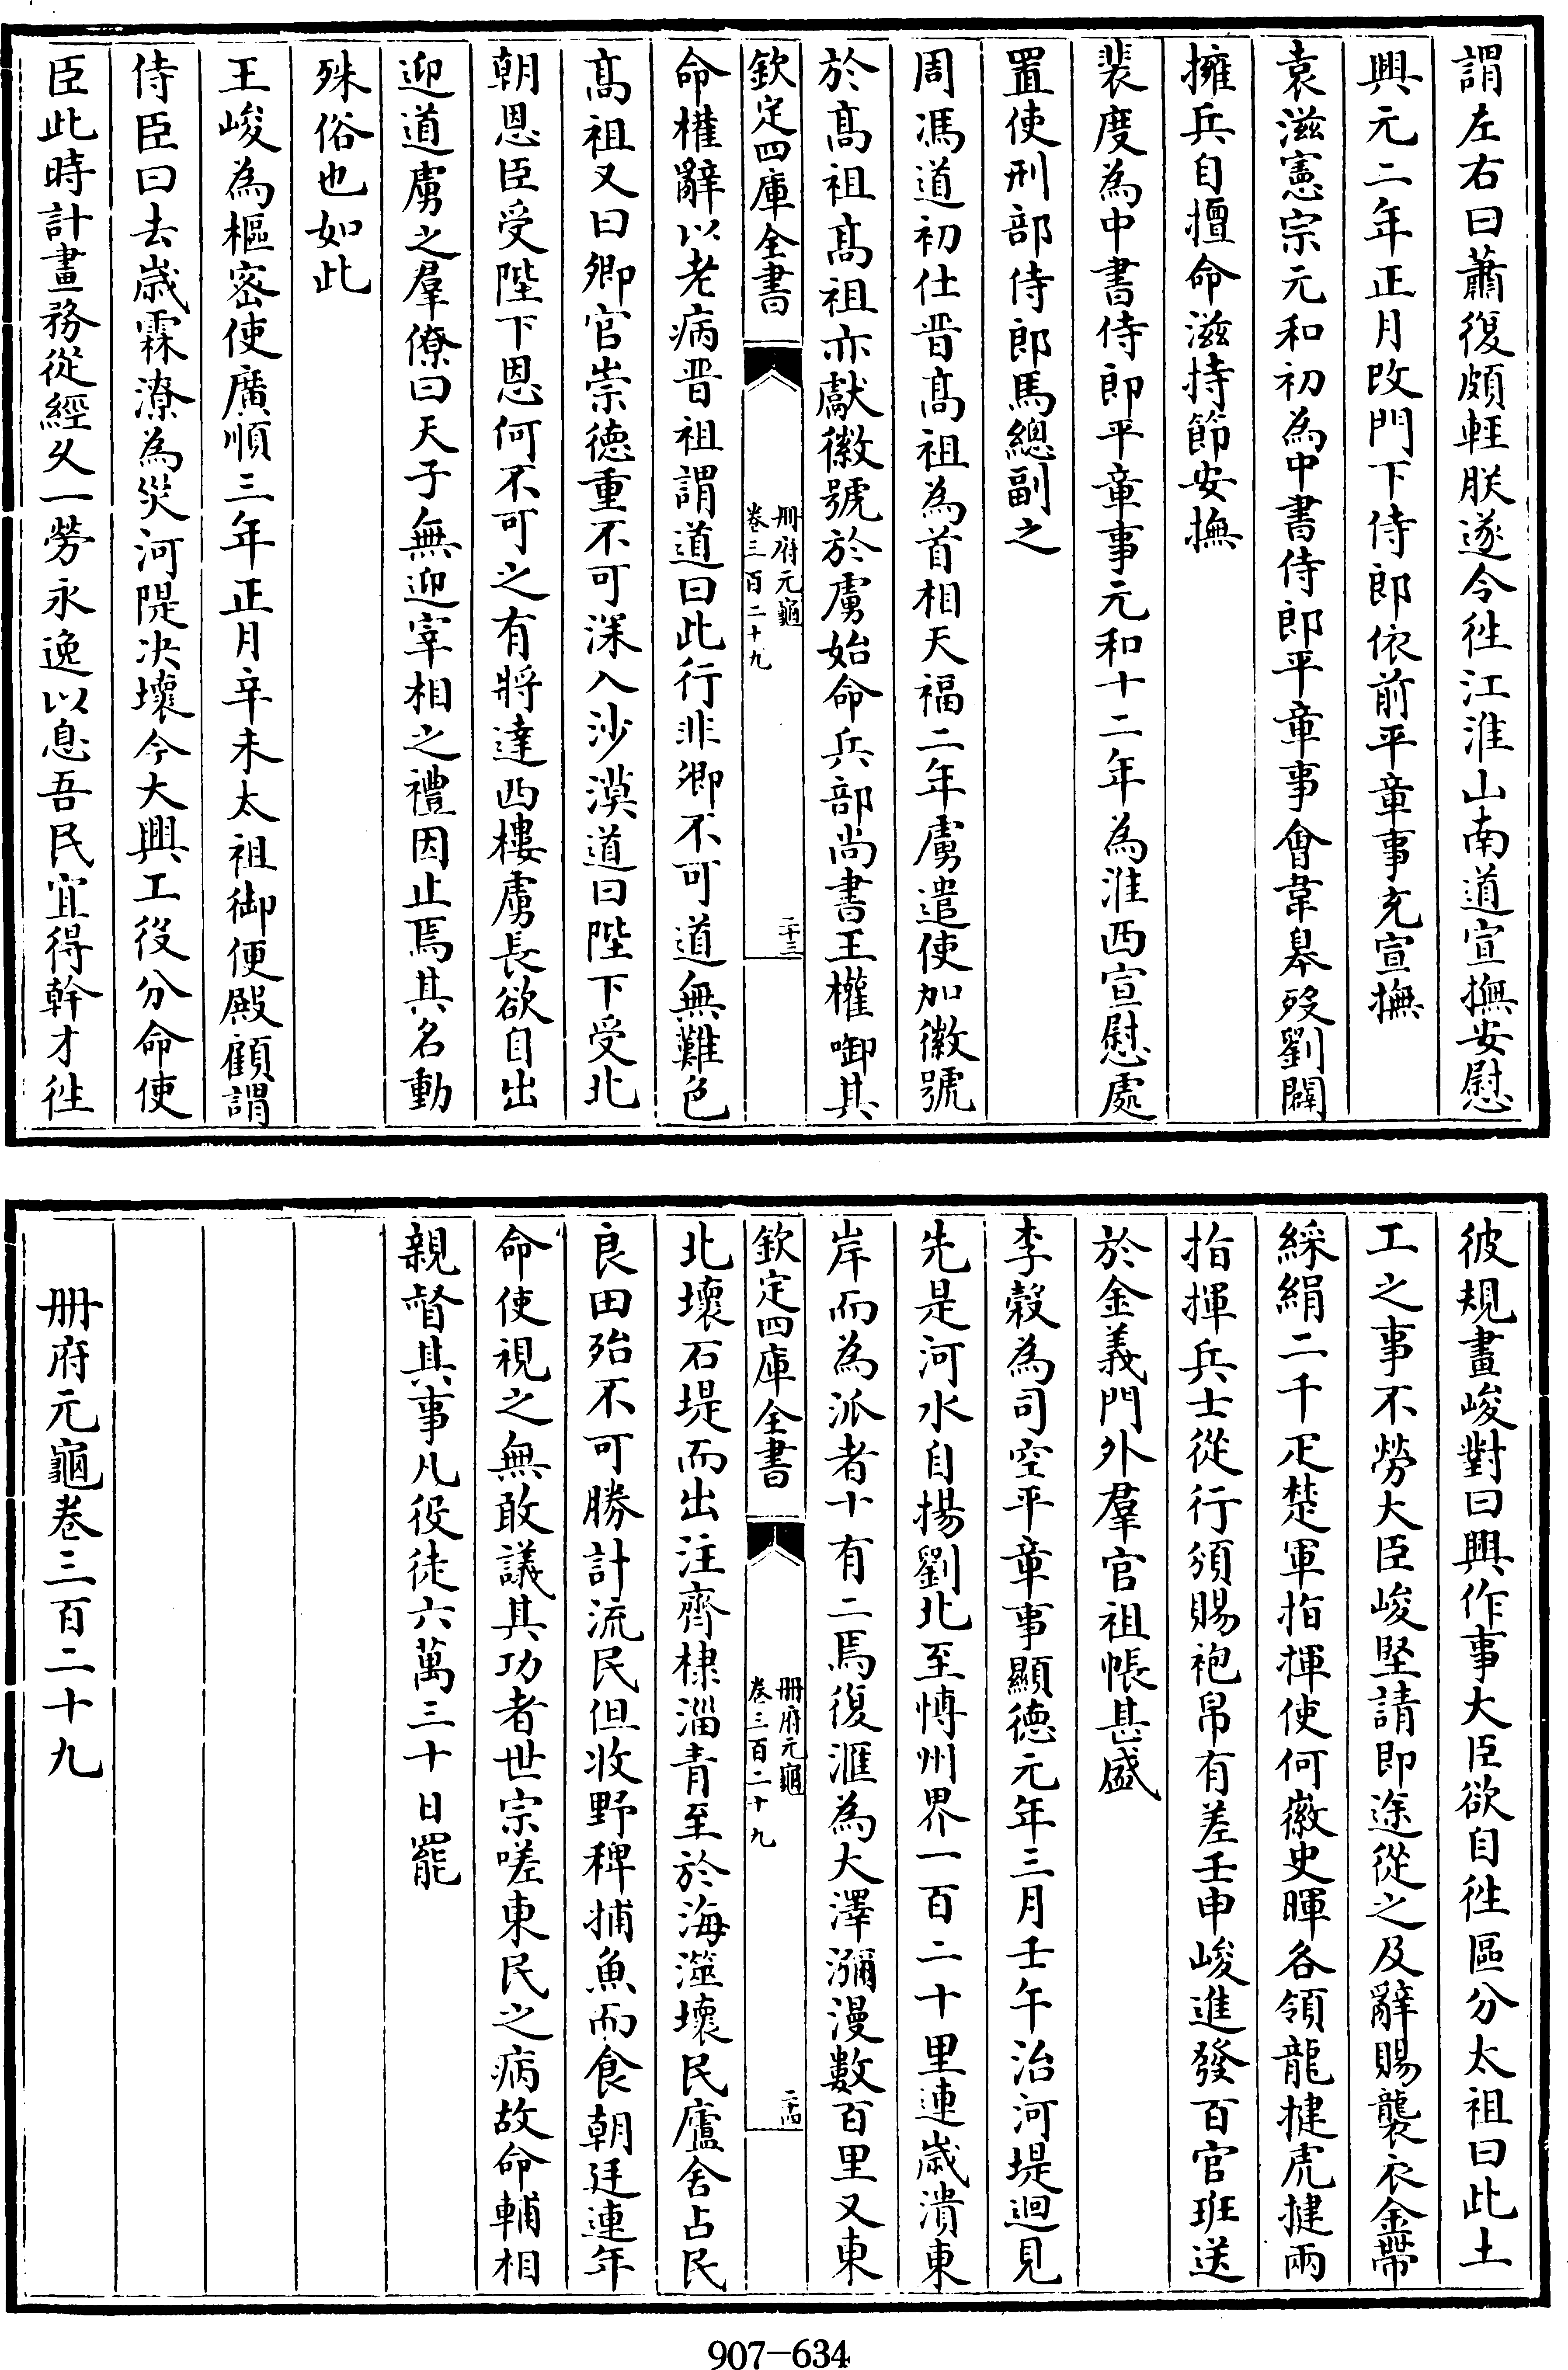 謂左右曰蕭復頗輕朕遂令徃江淮山南道宣撫安慰
興元二年正月改門下侍郎依前平章事充宣撫
袁滋憲宗元和初為中書侍郎平章事會韋臯歿劉闢
擁兵自擅命滋持節安撫
裴度為中書侍郎平章事元和十二年為淮西宣慰處
置使刑部侍郎馬總副之
周馮道初仕晋髙祖為首相天福二年虜遣使加徽號
於髙祖髙祖亦獻徽號於虜始命兵部尚書王權衘其
欽定四庫全書
册府元龜
卷三百二十九
二十三
命權辭以老病晋祖謂道曰此行非卿不可道無難色
髙祖又曰卿官崇德重不可深入沙漠道曰陛下受北
朝恩臣受陛下恩何不可之有將達西樓虜長欲自出
迎道虜之羣僚曰天子無迎宰相之禮因止焉其名動
殊俗也如此
王峻為樞密使廣順三年正月辛未太祖御便殿顧謂
侍臣曰去歲霖潦為災河隄决壞今大興工役分命使
臣此時計畫務從經久一勞永逸以息吾民宜得幹才徃
彼規畫峻對曰興作事大臣欲自徃區分太祖曰此土
工之事不勞大臣峻堅請即途從之及辭賜襲衣金帶
綵絹二千疋楚軍指揮使何徽史暉各領龍捷虎捷兩
指揮兵士從行須賜袍帛有差壬申峻進發百官班送
於金義門外羣官祖帳甚盛
李穀為司空平章事顯德元年三月壬午治河堤迴見
先是河水自揚劉北至博州界一百二十里連歲潰東
岸而為派者十有二焉復滙為大澤瀰漫數百里又東
欽定四庫全書
册府元龜
卷三百二十九
二十四
北壞石堤而出注齊棣淄青至於海澨壞民廬舍占民
良田殆不可勝計流民但收野稗捕魚而食朝廷連年
命使視之無敢議其功者世宗嗟東民之病故命輔相
親督其事凡役徒六萬三十日罷
册府元龜卷三百二十九
907-634